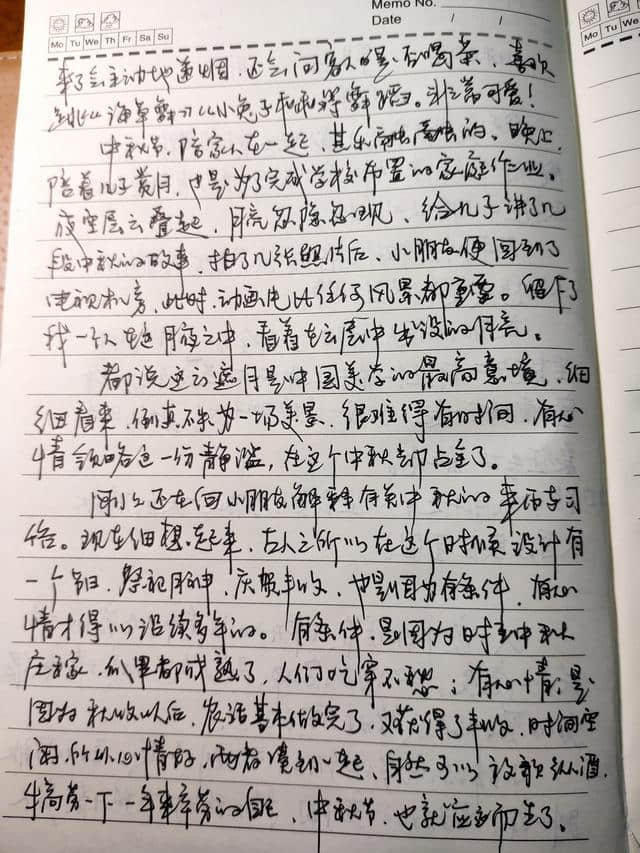 Memo No.
Date / /
Mo Tu We Th Fr Sa Su
Mo Tu
来了会主动地递烟，还会问客人是否喝茶，喜欢
跳
海草舞
小兔子
舞蹈。非常可爱！
中秋节，陪家人在一起，其乐融融的。晚上，
陪着儿子赏月，也是为了完成学校布置的家庭作业。
夜空层云叠起，月亮忽隐忽现，给儿子讲了几
段中秋的故事，拍了几张照片后，小朋友便回到了
电视机旁，此时，动画片比任何风景都重要。留下了
我一个人在这月夜之中，看着在云层中
的月亮。
都说
云遮月是中国美学的最高意境，细
细看来，倒真不失为一场美景，很难得有时间，有心
情领略这一份静谧，在这个中秋却占全了。
刚才还在向小朋友解释有关中秋的来历与习
俗。现在细想起来，古人之所以在这个时候设计有
一个节日，祭祀月神，庆贺丰收，也是因为有条件，有心
情才得以延续多年的。有条件，是因为时至中秋
庄稼、瓜果都成熟了，人们吃穿不愁；有心情，是
因为秋收以后，农活基本做完了，又获得了丰收，时间空
闲，所以心情好，两者凑到一起，自然可以设歌纵酒，
犒劳一下一年来辛劳的自己，中秋节，也就应运而生了。